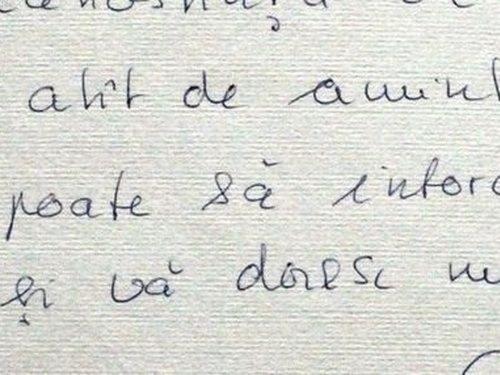 atît de amint
poate să intorc
și vă doresc